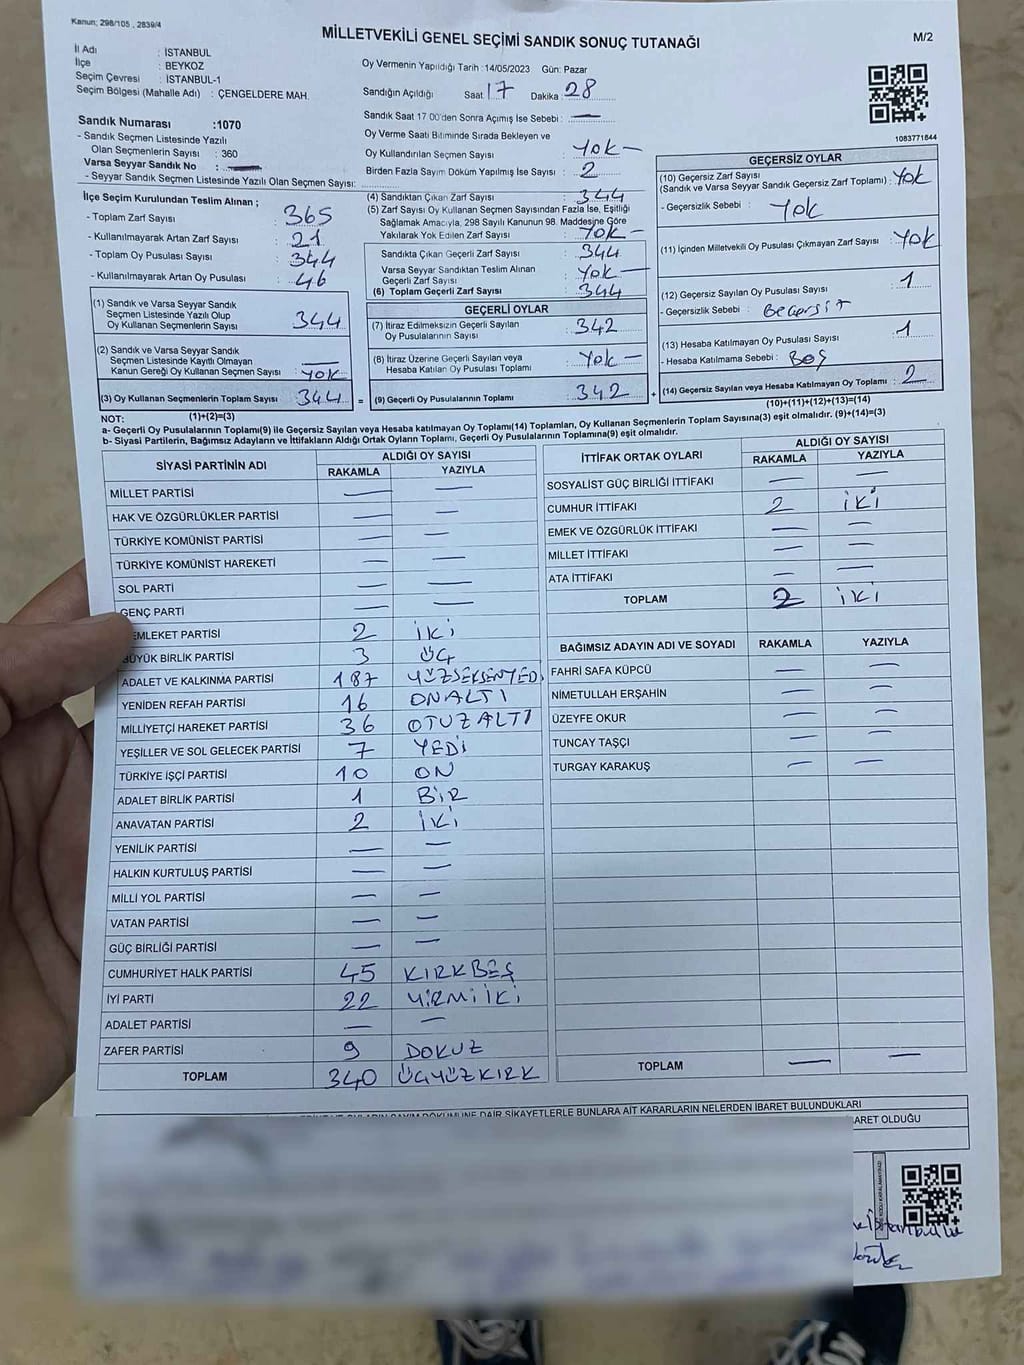 Kanun; 298/105 , 2839/4
MİLLETVEKİLİ GENEL SEÇİMİ SANDIK SONUÇ TUTANAĞI
M/2
İl Adı : İSTANBUL
İlçe : BEYKOZ
Seçim Çevresi : İSTANBUL-1
Seçim Bölgesi (Mahalle Adı) : ÇENGELDERE MAH.
Oy Vermenin Yapıldığı Tarih : 14/05/2023 Gün: Pazar
Sandığın Açıldığı Saat 17 Dakika : 28
Sandık Saat 17.00'den Sonra Açımış İse Sebebi : —
Oy Verme Saati Bitiminde Sırada Bekleyen ve
Oy Kullandırılan Seçmen Sayısı : YOK —
Birden Fazla Sayım Döküm Yapılmış İse Sayısı : 2
1083771844
Sandık Numarası :1070
- Sandık Seçmen Listesinde Yazılı
Olan Seçmenlerin Sayısı : 360
Varsa Seyyar Sandık No : —
- Seyyar Sandık Seçmen Listesinde Yazılı Olan Seçmen Sayısı:
İlçe Seçim Kurulundan Teslim Alınan ;
- Toplam Zarf Sayısı : 365
- Kullanılmayarak Artan Zarf Sayısı : 21
- Toplam Oy Pusulası Sayısı : 344
- Kullanılmayarak Artan Oy Pusulası : 46
(1) Sandık ve Varsa Seyyar Sandık
Seçmen Listesinde Yazılı Olup
Oy Kullanan Seçmenlerin Sayısı : 344
(2) Sandık ve Varsa Seyyar Sandık
Seçmen Listesinde Kayıtlı Olmayan
Kanun Gereği Oy Kullanan Seçmen Sayısı : YOK
(3) Oy Kullanan Seçmenlerin Toplam Sayısı : 344 =
(1)+(2)=(3)
(4) Sandıktan Çıkan Zarf Sayısı : 344
(5) Zarf Sayısı Oy Kullanan Seçmen Sayısından Fazla İse, Eşitliği
Sağlamak Amacıyla, 298 Sayılı Kanunun 98. Maddesine Göre
Yakılarak Yok Edilen Zarf Sayısı : YOK —
Sandıkta Çıkan Geçerli Zarf Sayısı : 344
Varsa Seyyar Sandıktan Teslim Alınan
Geçerli Zarf Sayısı : YOK —
(6) Toplam Geçerli Zarf Sayısı : 344
GEÇERLİ OYLAR
(7) İtiraz Edilmeksizin Geçerli Sayılan
Oy Pusulalarının Sayısı : 342
(8) İtiraz Üzerine Geçerli Sayılan veya
Hesaba Katılan Oy Pusulaları Toplamı : YOK —
(9) Geçerli Oy Pusulalarının Toplamı : 342 +
GEÇERSİZ OYLAR
(10) Geçersiz Zarf Sayısı
(Sandık ve Varsa Seyyar Sandık Geçersiz Zarf Toplamı) : YOK
- Geçersizlik Sebebi : YOK
(11) İçinden Milletvekili Oy Pusulası Çıkmayan Zarf Sayısı : YOK
(12) Geçersiz Sayılan Oy Pusulası Sayısı : 1
- Geçersizlik Sebebi :
(13) Hesaba Katılmayan Oy Pusulası Sayısı : 1
- Hesaba Katılmama Sebebi : BOŞ
(14) Geçersiz Sayılan veya Hesaba Katılmayan Oy Toplamı : 2
(10)+(11)+(12)+(13)=(14)
NOT:
a- Geçerli Oy Pusulalarının Toplamı(9) ile Geçersiz Sayılan veya Hesaba katılmayan Oy Toplamı(14) Toplamları, Oy Kullanan Seçmenlerin Toplam Sayısına(3) eşit olmalıdır. (9)+(14)=(3)
b- Siyasi Partilerin, Bağımsız Adayların ve İttifakların Aldığı Ortak Oyların Toplamı, Geçerli Oy Pusulalarının Toplamına(9) eşit olmalıdır.
SİYASİ PARTİNİN ADI
ALDIĞI OY SAYISI
RAKAMLA YAZIYLA
MİLLET PARTİSİ — —
HAK VE ÖZGÜRLÜKLER PARTİSİ — —
TÜRKİYE KOMÜNİST PARTİSİ — —
TÜRKİYE KOMÜNİST HAREKETİ — —
SOL PARTİ — —
GENÇ PARTİ — —
EMLEKET PARTİSİ 2 İKİ
BÜYÜK BİRLİK PARTİSİ 3 ÜÇ
ADALET VE KALKINMA PARTİSİ 187 YÜZSEKSENYEDİ
YENİDEN REFAH PARTİSİ 16 ONALTI
MİLLİYETÇİ HAREKET PARTİSİ 36 OTUZALTI
YEŞİLLER VE SOL GELECEK PARTİSİ 7 YEDİ
TÜRKİYE İŞÇİ PARTİSİ 10 ON
ADALET BİRLİK PARTİSİ 1 BİR
ANAVATAN PARTİSİ 2 İKİ
YENİLİK PARTİSİ — —
HALKIN KURTULUŞ PARTİSİ — —
MİLLİ YOL PARTİSİ — —
VATAN PARTİSİ — —
GÜÇ BİRLİĞİ PARTİSİ — —
CUMHURİYET HALK PARTİSİ 45 KIRKBEŞ
İYİ PARTİ 22 YİRMİİKİ
ADALET PARTİSİ — —
ZAFER PARTİSİ 9 DOKUZ
TOPLAM 340 ÜÇYÜZKIRK
İTTİFAK ORTAK OYLARI
ALDIĞI OY SAYISI
RAKAMLA YAZIYLA
SOSYALİST GÜÇ BİRLİĞİ İTTİFAKI — —
CUMHUR İTTİFAKI 2 İKİ
EMEK VE ÖZGÜRLÜK İTTİFAKI — —
MİLLET İTTİFAKI — —
ATA İTTİFAKI — —
TOPLAM 2 İKİ
BAĞIMSIZ ADAYIN ADI VE SOYADI RAKAMLA YAZIYLA
FAHRİ SAFA KÜPCÜ — —
NİMETULLAH ERŞAHİN — —
ÜZEYFE OKUR — —
TUNCAY TAŞÇI — —
TURGAY KARAKUŞ — —
TOPLAM — —
SAYIM DÖKÜMÜNE DAİR ŞİKAYETLERLE BUNLARA AİT KARARLARIN NELERDEN İBARET BULUNDUKLARI
BARET OLDUĞU